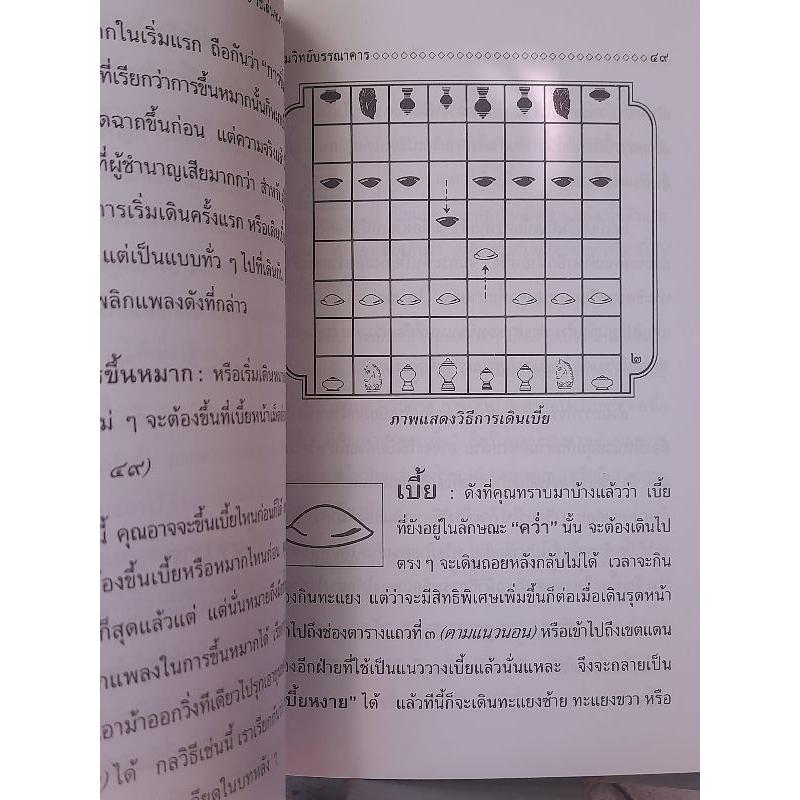 กในเริ่มแรก ถือกันว่า
ที่เรียกว่าการขึ้นหมากนั้นก็
ดฉากขึ้นก่อน แต่ความจริง
ที่ผู้ชำนาญเสียมากกว่า สำหรับ
การเริ่มเดินครั้งแรก หรือเดิน
แต่เป็นแบบทั่ว ๆ ไปที่เดินกัน
พลิกแพลงดังที่กล่าว
รขึ้นหมาก : หรือเริ่มเดินหมาก
ม่ ๆ จะต้องขึ้นที่เบี้ยหน้าเม็ด
๔๙)
นี้ คุณอาจจะขึ้นเบี้ยไหนก่อนก็ได้
องขึ้นเบี้ยหรือหมากไหนก่อน
ก็สุดแล้วแต่ แต่นั่นหมายถึง
กแพลงในการขึ้นหมากได้
เอาม้าออกวิ่งทีเดียวไปรุก
) ได้ กลวิธีเช่นนี้ เราเรียกกัน
อียดในบทหลัง ๆ
มวิทย์บรรณาคาร ๔๙
๒
ภาพแสดงวิธีการเดินเบี้ย
เบี้ย : ดังที่คุณทราบมาบ้างแล้วว่า เบี้ย
ที่ยังอยู่ในลักษณะ “คว่ำ” นั้น จะต้องเดินไป
ตรง ๆ จะเดินถอยหลังกลับไม่ได้ เวลาจะกิน
องกินทะแยง แต่ว่าจะมีสิทธิพิเศษเพิ่มขึ้นก็ต่อเมื่อเดินรุดหน้า
าไปถึงช่องตารางแถวที่ ๓ (ตามแนวนอน) หรือเข้าไปถึงเขตแดน
องอีกฝ่ายที่ใช้เป็นแนววางเบี้ยแล้วนั่นแหละ จึงจะกลายเป็น
บี้ยหงาย” ได้ แล้วทีนี้ก็จะเดินทะแยงซ้าย ทะแยงขวา หรือ